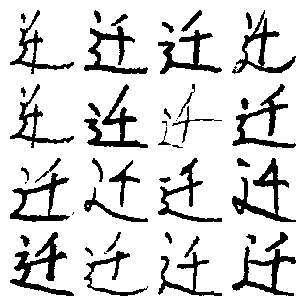 迁 迁 迁 迁
迁 迁 迁 迁
迁 迁 迁 迁
迁 迁 迁 迁